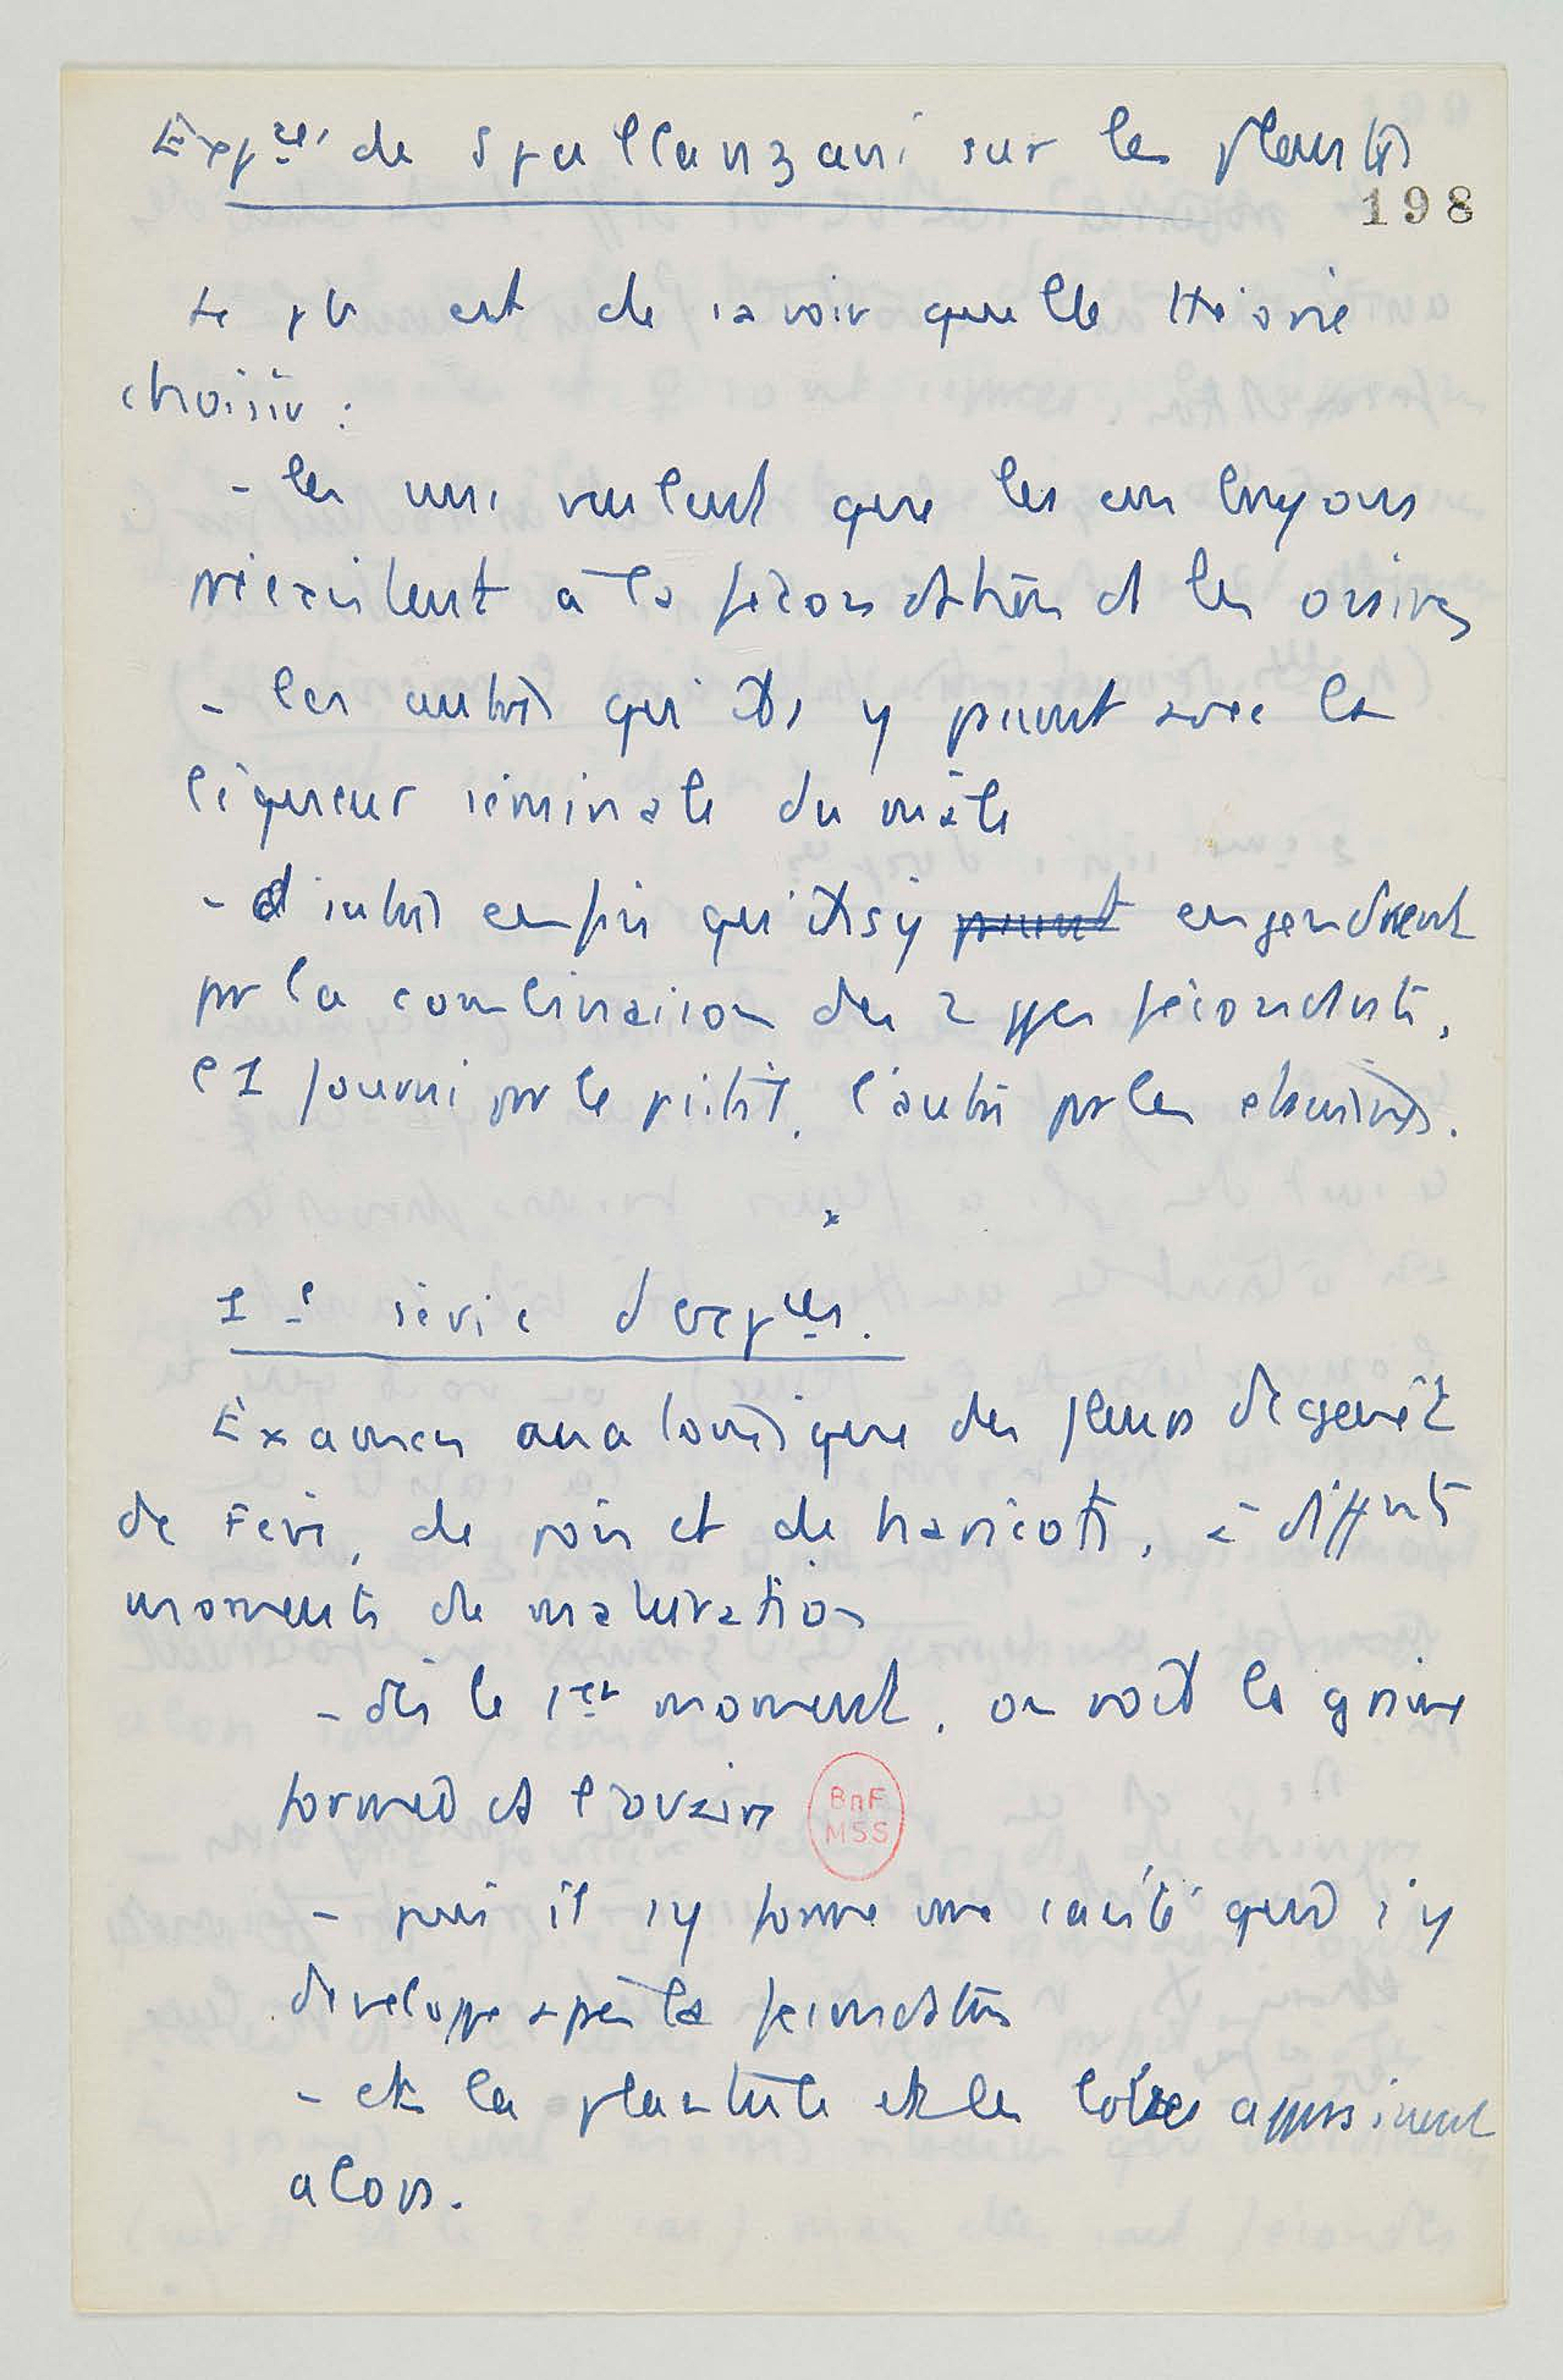 Expces de Spallanzani sur les plantes
198
Le pb est de savoir quelle théorie
choisir :
- les uns veulent que les embryons
préexistent à la fécondation ds les ovaires
- les autres qu'ils y passent avec la
liqueur séminale du mâle
- d'autres enfin qu'ils s'y passent engendrent
par la combinaison des 2 ppes fécondants,
l'1 fourni par le pistil, l'autre par les étamines.
x
1e série d'expces.
Examen anatomique des fleurs de genêt
de Fève, de pois et de haricots, à diffnts
moments de maturation
- dès le 1er moment, on voit la graine
formée ds l'ovaire
- puis il s'y forme une cavité qui s'y
développe après la fécondation
- et la plantule et les lobes apparaissent
alors.
BnF
MSS